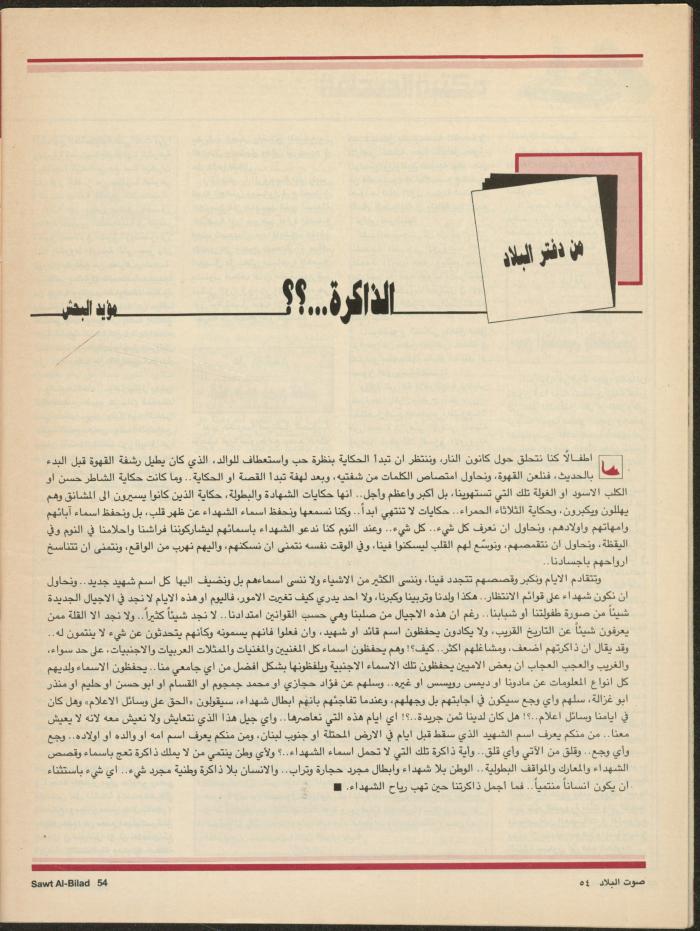 من دفتر البلاد
الذاكرة...؟؟
مؤيد البحش
اطفـالًا كنا نتحلق حول كانون النار، وننتظر ان تبدأ الحكاية بنظرة حب واستعطاف للوالد، الذي كان يطيل رشفة القهوة قبل البدء
بالحديث، فنلعن القهوة، ونحاول امتصاص الكلمات من شفتيه، وبعد لهفة تبدأ القصة او الحكاية.. وما كانت حكاية الشاطر حسن او
الكلب الاسود او الغولة تلك التي تستهوينا، بل أكبر واعظم واجل.. انها حكايات الشهادة والبطولة، حكاية الذين كانوا يسيرون الى المشانق وهم
يهللون ويكبرون، وحكاية الثلاثاء الحمراء.. حكايات لا تنتهي ابداً.. وكنا نسمعها ونحفظ اسماء الشهداء عن ظهر قلب، بل ونحفظ اسماء آبائهم
وامهاتهم واولادهم، ونحاول ان نعرف كل شيء.. كل شيء.. وعند النوم كنا ندعو الشهداء باسمائهم ليشاركوننا فراشنا واحلامنا في النوم وفي
اليقظة، ونحاول ان نتقمصهم، ونوسّع لهم القلب ليسكنوا فينا، وفي الوقت نفسه نتمنى ان نسكنهم، واليهم نهرب من الواقع، ونتمنى ان تتناسخ
ارواحهم باجسادنا..
وتتقادم الايام ونكبر وقصصهم تتجدد فينا، وننسى الكثير من الاشياء ولا ننسى اسماءهم بل ونضيف اليها كل اسم شهيد جديد.. ونحاول
ان نكون شهداء على قوائم الانتظار.. هكذا ولدنا وتربينا وكبرنا، ولا احد يدري كيف تغيرت الامور، فاليوم او هذه الايام لا نجد في الاجيال الجديدة
شيئاً من صورة طفولتنا أو شبابنا.. رغم ان هذه الاجيال من صلبنا وهي حسب القوانين امتدادنا.. لا نجد شيئاً كثيراً.. ولا نجد الا القلة ممن
يعرفون شيئاً عن التاريخ القريب، ولا يكادون يحفظون اسم قائد او شهيد، وان فعلوا فانهم يسمونه وكأنهم يتحدثون عن شيء لا ينتمون له..
وقد يقال ان ذاكرتهم اضعف، ومشاغلهم اكثر.. كيف؟! وهم يحفظون اسماء كل المغنيين والمغنيات والممثلات العربيات والاجنبيات، على حد سواء،
والغريب والعجب العجاب ان بعض الاميين يحفظون تلك الاسماء الاجنبية ويلفظونها بشكل افضل من اي جامعي منا.. يحفظون الاسماء ولديهم
كل انواع المعلومات عن مادونا او ديمس رويسس او غيره.. وسلهم عن فؤاد حجازي او محمد جمجوم او القسام او ابو حسن او حليم او منذر
ابو غزالة، سلهم واي وجع سيكون في اجابتهم بل وجهلهم، وعندما تفاجئهم بانهم ابطال شهداء، سيقولون «الحق على وسائل الاعلام» وهل كان
في ايامنا وسائل اعلام..؟! هل كان لدينا ثمن جريدة..؟! اي ايام هذه التي نعاصرها.. واي جيل هذا الذي نتعايش ولا نعيش معه لانه لا يعيش
معنا.. من منكم يعرف اسم الشهيد الذي سقط قبل ايام في الارض المحتلة او جنوب لبنان، ومن منكم يعرف اسم امه او والده او اولاده.. وجع
وأي وجع.. وقلق من الآتي وأي قلق.. وأية ذاكرة تلك التي لا تحمل اسماء الشهداء..؟ ولأي وطن ينتمي من لا يملك ذاكرة تعج باسماء وقصص
الشهداء والمعارك والمواقف البطولية.. الوطن بلا شهداء وابطال مجرد حجارة وتراب.. والانسان بلا ذاكرة وطنية مجرد شيء.. اي شيء باستثناء
ان يكون انساناً منتمياً.. فما اجمل ذاكرتنا حين تهب رياح الشهداء. ■
صوت البلاد ٥٤
Sawt Al-Bilad 54